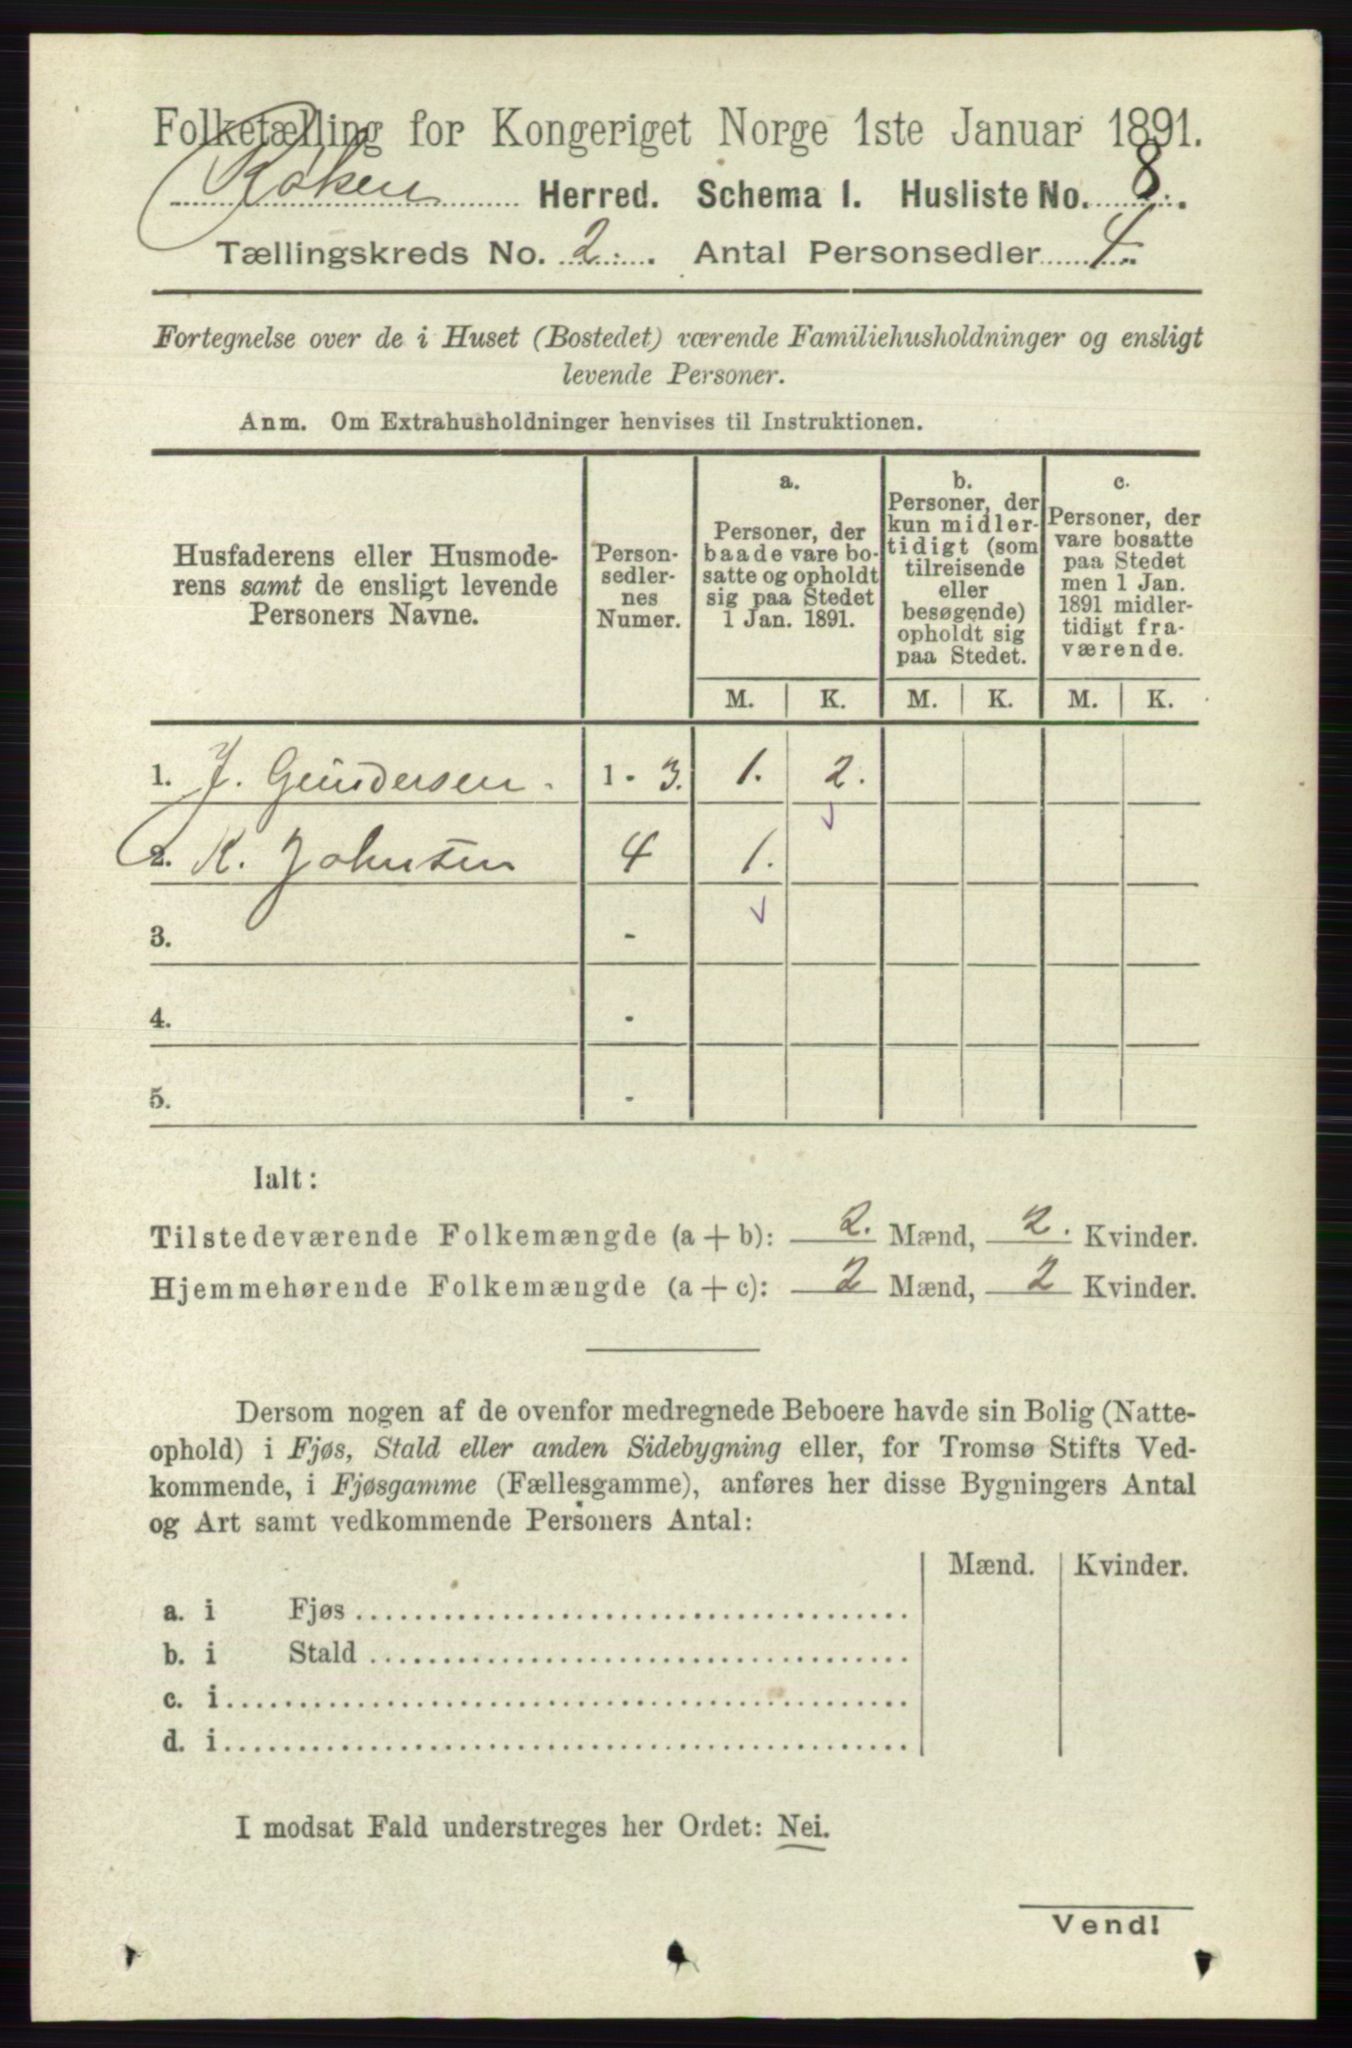 Folketælling for Kongeriget Norge 1ste Januar 1891.
Røken Herred. Schema I. Husliste No. 8.
Tællingskreds No. 2. Antal Personsedler 4.
Fortegnelse over de i Huset (Bostedet) værende Familiehusholdninger og ensligt
levende Personer.
Anm. Om Extrahusholdninger henvises til Instruktionen.
Husfaderens eller Husmode-
rens samt de ensligt levende
Personers Navne.
Person-
sedler-
nes
Numer.
a.
Personer, der
baade vare bo-
satte og opholdt
sig paa Stedet
1 Jan. 1891.
b.
Personer, der
kun midler-
tidigt (som
tilreisende
eller
besøgende)
opholdt sig
paa Stedet.
c.
Personer, der
vare bosatte
paa Stedet
men 1 Jan.
1891 midler-
tidigt fra-
værende.
M. K. M. K. M. K.
1. J. Gundersen. 1 - 3. 1. 2.
2. K. Johnsen 4 1.
3. -
4. -
5. -
Ialt:
Tilstedeværende Folkemængde (a + b): 2. Mænd, 2. Kvinder.
Hjemmehørende Folkemængde (a + c): 2 Mænd, 2 Kvinder.
Dersom nogen af de ovenfor medregnede Beboere havde sin Bolig (Natte-
ophold) i Fjøs, Stald eller anden Sidebygning eller, for Tromsø Stifts Ved-
kommende, i Fjøsgamme (Fællesgamme), anføres her disse Bygningers Antal
og Art samt vedkommende Personers Antal:
Mænd. Kvinder.
a. i Fjøs
b. i Stald
c. i
d. i
I modsat Fald understreges her Ordet: Nei.
Vend!